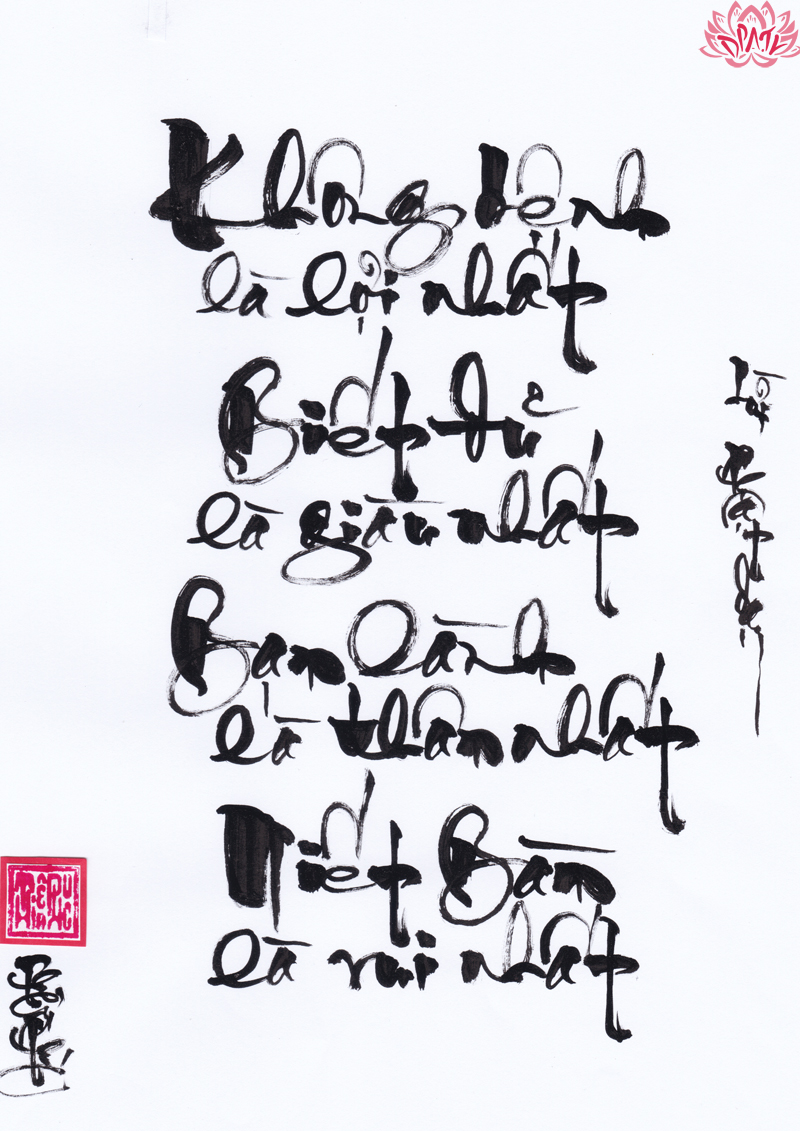 Không bệnh
là lợi nhất
Biết đủ
là giàu nhất
Bạn lành
là thân nhất
Niết Bàn
là vui nhất
Lời
Phật dạy
DPATV